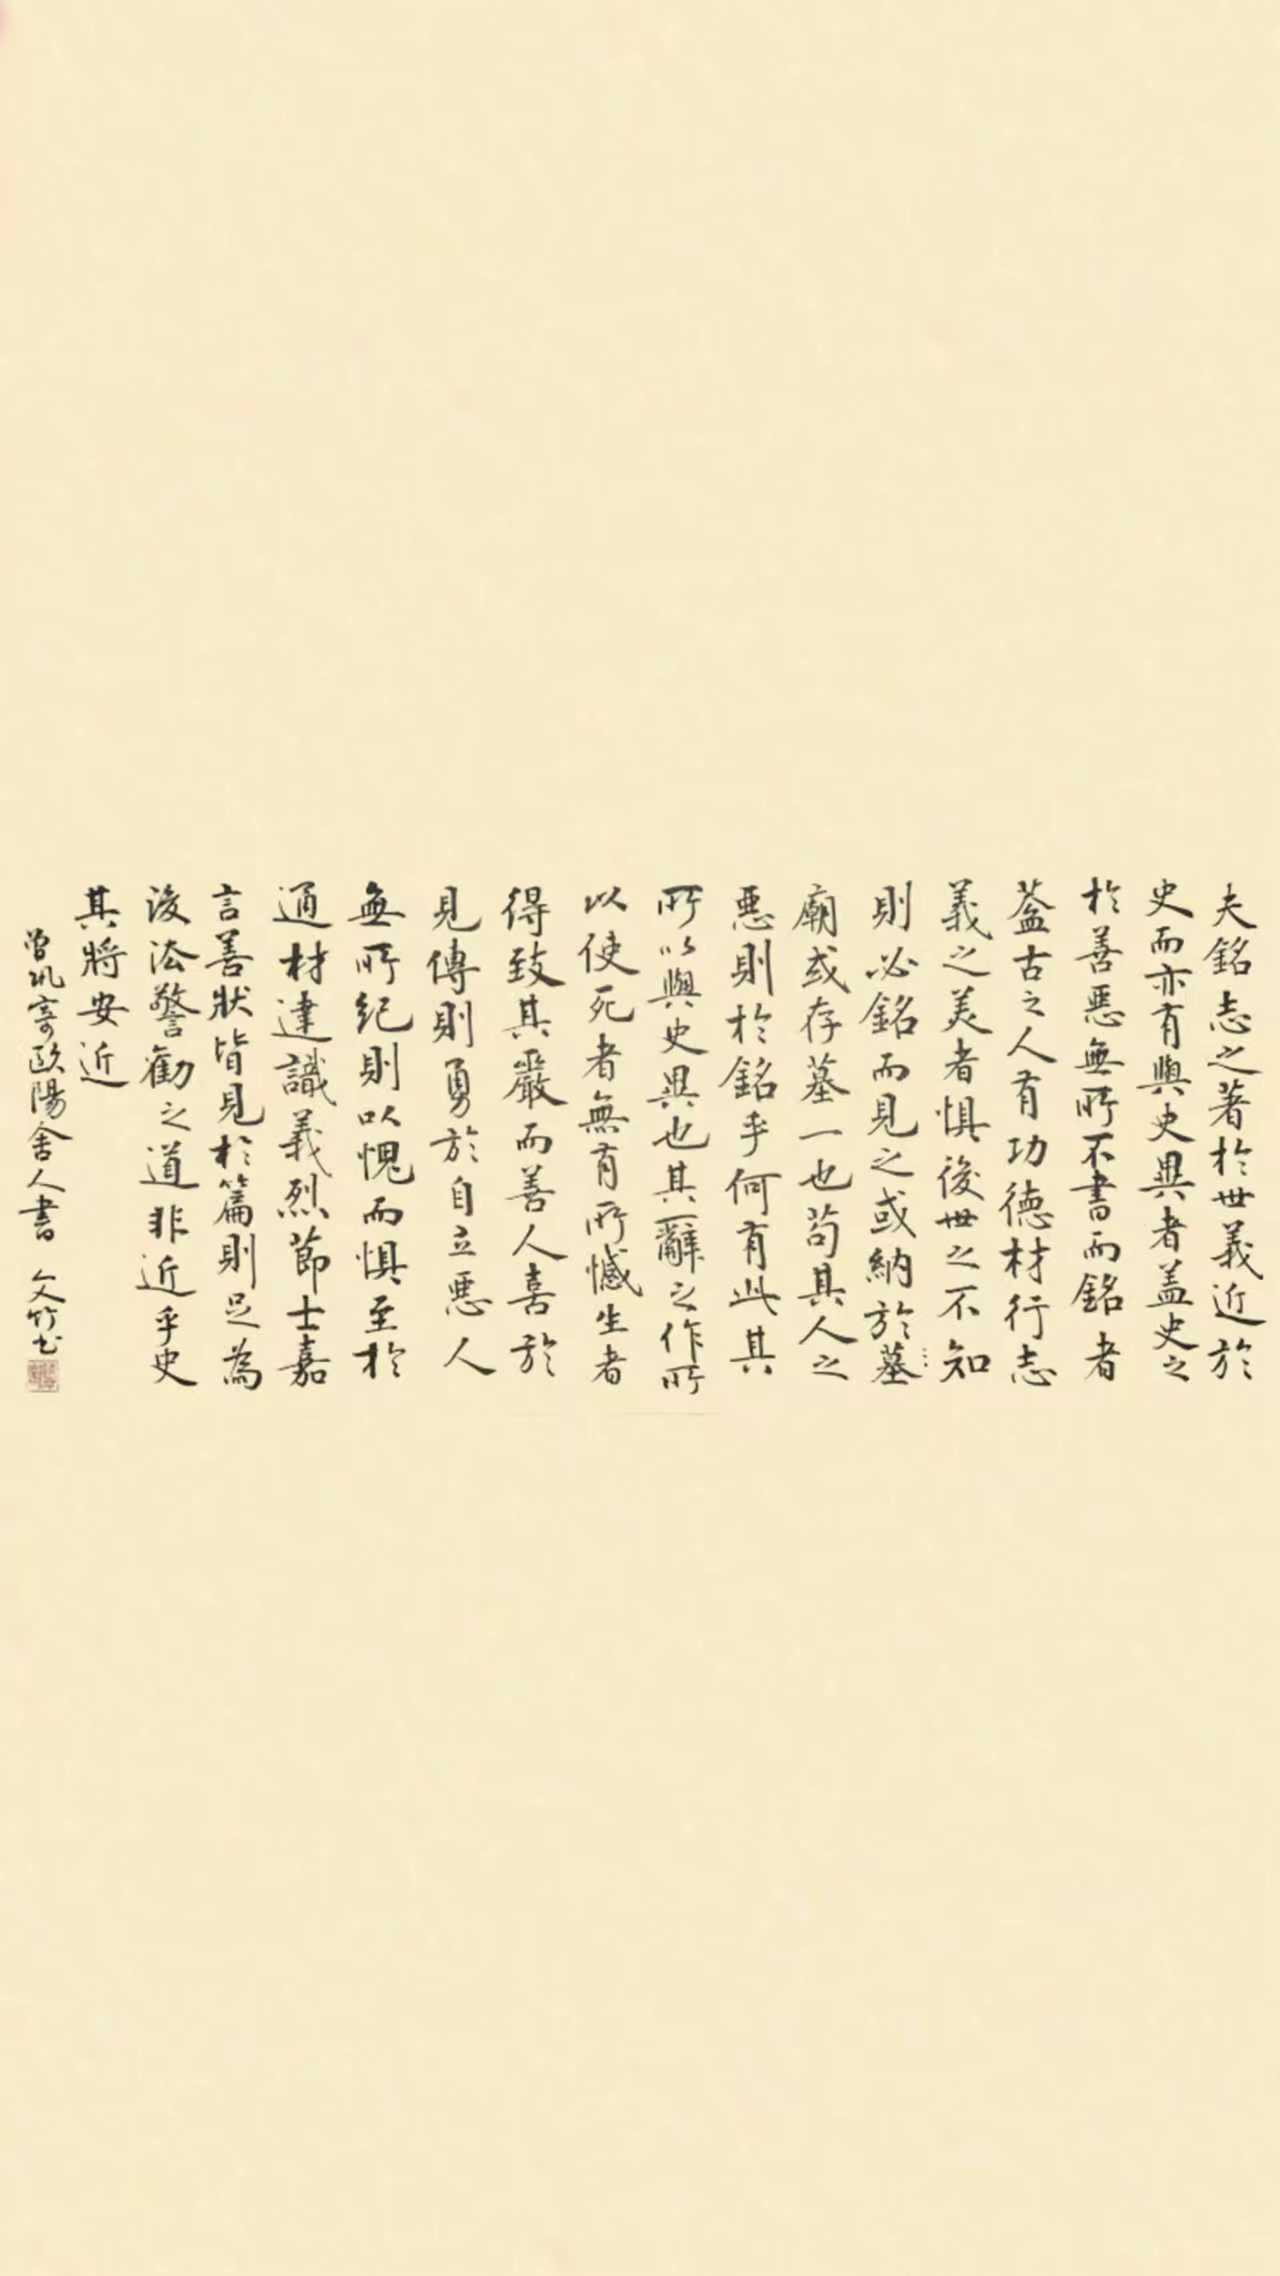 夫銘志之著於世義近於
史而亦有與史異者蓋史之
於善惡無所不書而銘者
蓋古之人有功德材行志
義之美者懼後世之不知
則必銘而見之或納於墓
廟或存墓一也苟其人之
惡則於銘乎何有此其
所以與史異也其辭之作所
以使死者無有所憾生者
得致其嚴而善人喜於
見傳則勇於自立惡人
無所紀則以愧而懼至於
通材達識義烈節士嘉
言善狀皆見於篇則足為
後法警勸之道非近乎史
其將安近
曾鞏寄歐陽舍人書 文竹書